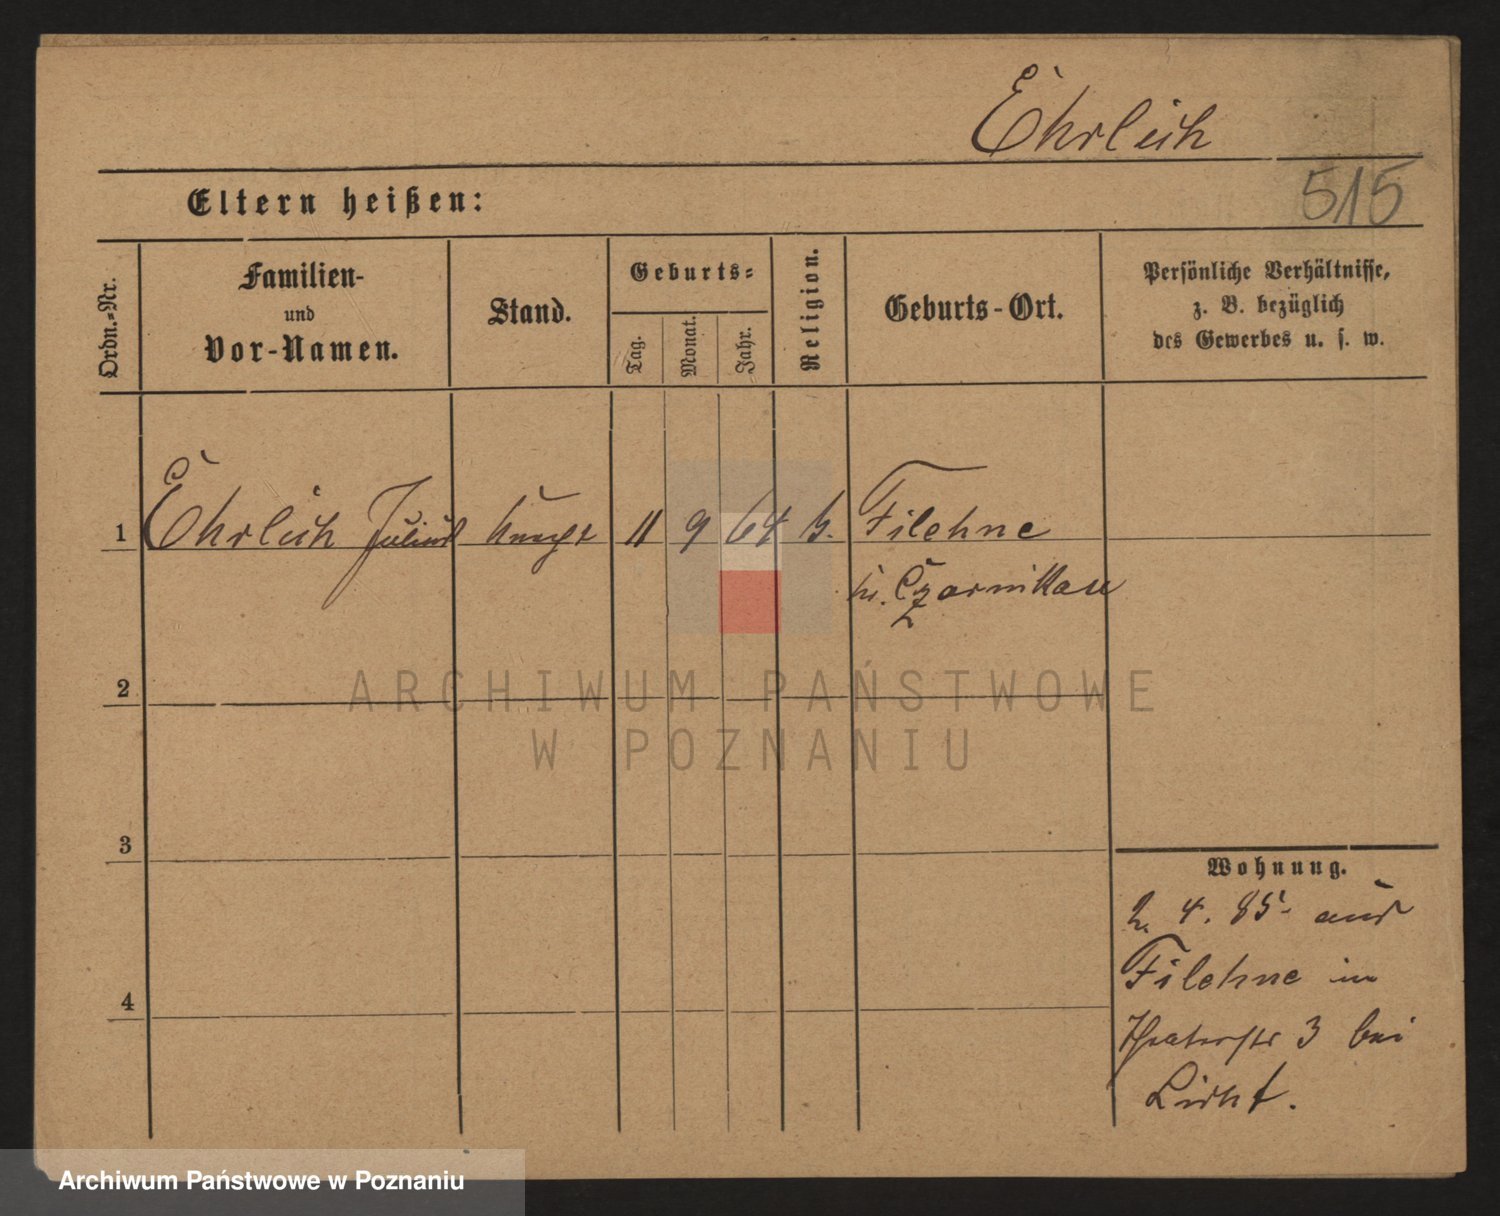 Ehrlich
515
Eltern heißen:
Ordn.=Nr.
Familien-
und
Vor-Namen.
Stand.
Geburts=
Tag.
Monat.
Jahr.
Religion.
Geburts-Ort.
Persönliche Verhältnisse,
z. B. bezüglich
des Gewerbes u. s. w.
1 Ehrlich Julius 11 9 64 Filehne
Czarnikau
2
3
4
Wohnung.
2. 4. 85. aus
Filehne in
Theaterstr 3 bei
Licht.
ARCHIWUM PAŃSTWOWE
W POZNANIU
Archiwum Państwowe w Poznaniu